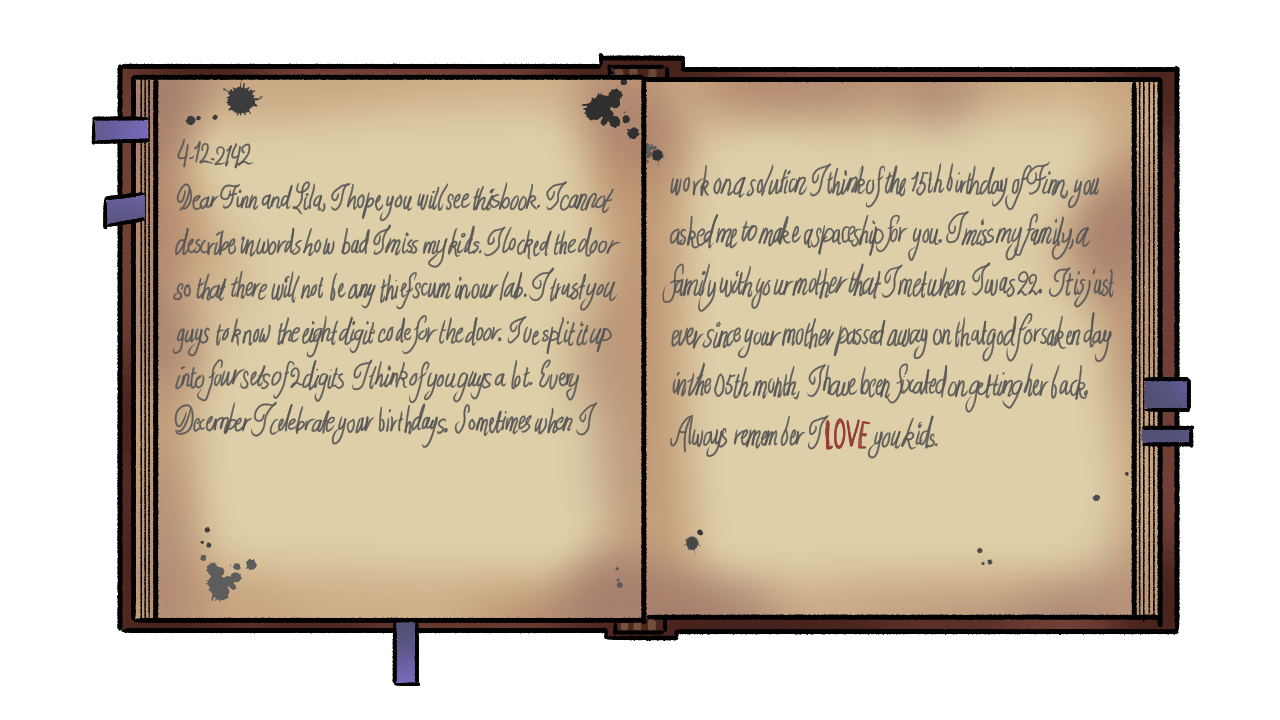 4-12-2142
Dear Finn and Lila, I hope you will see this book. I cannot
describe in words how bad I miss my kids. I locked the door
so that there will not be any thief scum in our lab. I trust you
guys to know the eight digit code for the door. I've split it up
into four sets of 2 digits I think of you guys a lot. Every
December I celebrate your birthdays. Sometimes when I
work on a solution I think of the 15th birthday of Finn, you
asked me to make a spaceship for you. I miss my family, a
family with your mother that I met when I was 22. It is just
ever since your mother passed away on that godforsaken day
in the 05th month, I have been fixated on getting her back.
Always remember I LOVE you kids.